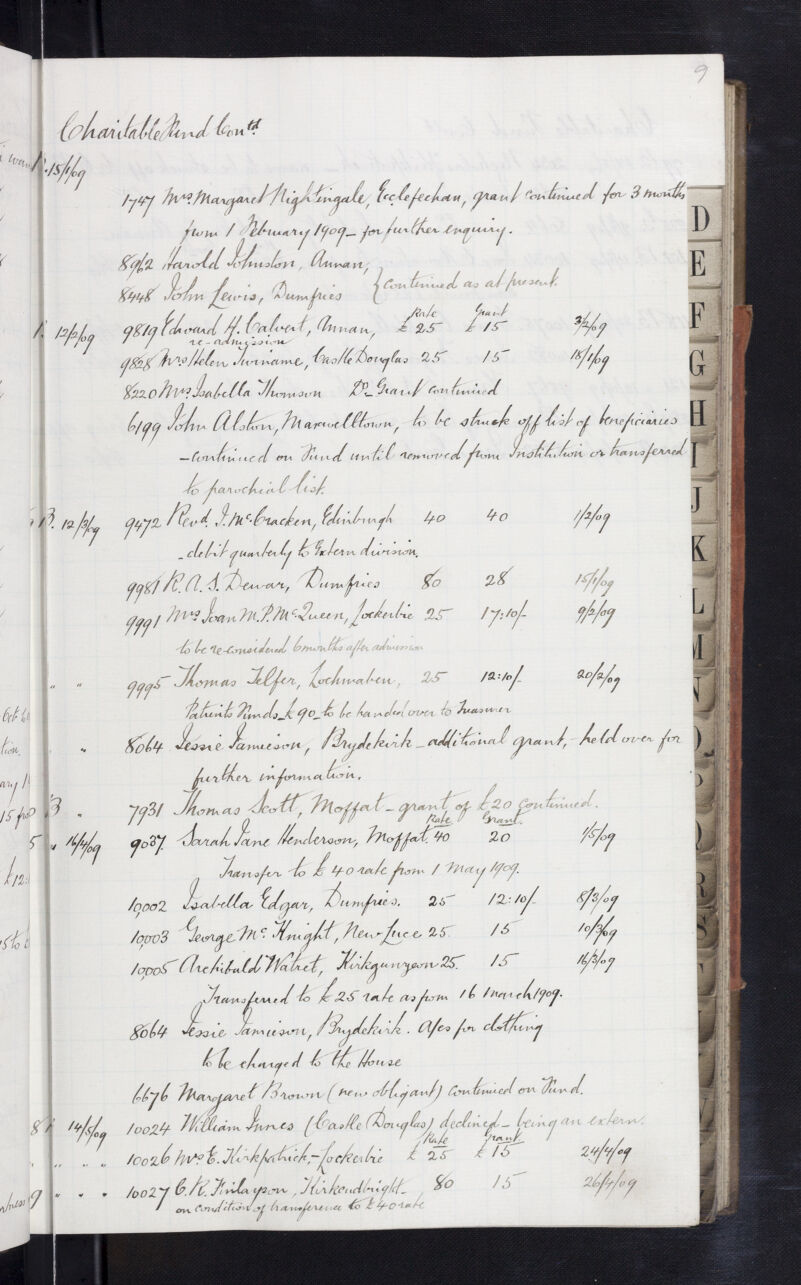 9
Charitable Fund Contd
B. 15/1/09
1747 Mrs Margaret Nightingale, Ecclefechan, grant continued for 3 months
from 1 February 1909 - for further enquiry.
8962 Harold Johnston, Annan,
8448 John Lewis, Dumfries } continued as at present.
Rate Grant
12/2/09 9819 Edward H. Calvert, Annan, £25 £15 3/2/09
re-admission
9828 Mrs Helen Twiname, Castle Douglas 25 15 18/1/09
8220 Mrs Isabella Thomson Do - Grant continued
6199 John Alston, Maxwelltown, to be struck off list of beneficiaries
- continued on Fund until removed from Institution or transferred
to parochial list.
B. 12/3/09 9472 Revd. J. McCracken, Edinburgh 40 40 1/2/09
- debit quarterly to Extern division.
9981 R. A. S. Dewar, Dumfries 80 28 15/1/09
9991 Mrs Joan M. P. McQueen, Lockerbie 25 17:10/- 9/2/09
to be re-considered 6 months after admission
" " 9995 Thomas Telfer, Lochmaben, 25 12:10/- 20/2/09
Patients Funds £90 - to be handed over to Treasurer
" 8064 Jessie Jamieson, Brydekirk - additional grant, - held over for
further information.
B " 7931 Thomas Scott, Moffat - grant of £20 continued.
Rate Grant.
5 " 16/4/09 9037. Sarah Jane Henderson, Moffat. 40 20 1/5/09
Transfer to £40 rate from 1 May 1909.
10,002 Isabella Edgar, Dumfries. 25 12:10/- 8/3/09
10,003 George McKnight, New Luce 25 15 10/3/09
10,005 Archibald Watret, Kirkgunzeon 25. 15 16/3/09
Transferred to £25 rate as from 16 March 1909.
8064 Jessie Jamieson, Brydekirk. A/cs for clothing
to be charged to the House
6676 Margaret Brown (new obligant) continued on Fund.
8 14/5/09 10024 William Innes (Castle Douglas) declined - being an extern.
Rate Grant
" " " 10026 Mrs E. Kirkpatrick, - Lockerbie £25 £15 24/4/09
9 " " " 10027 C. R. Finlayson, Kirkcudbright - 80 15 26/4/09
on condition of transference to £40 rate
D
E
F
G
H
I
J
K
L
M
N
O
P
Q
R
S
T
V